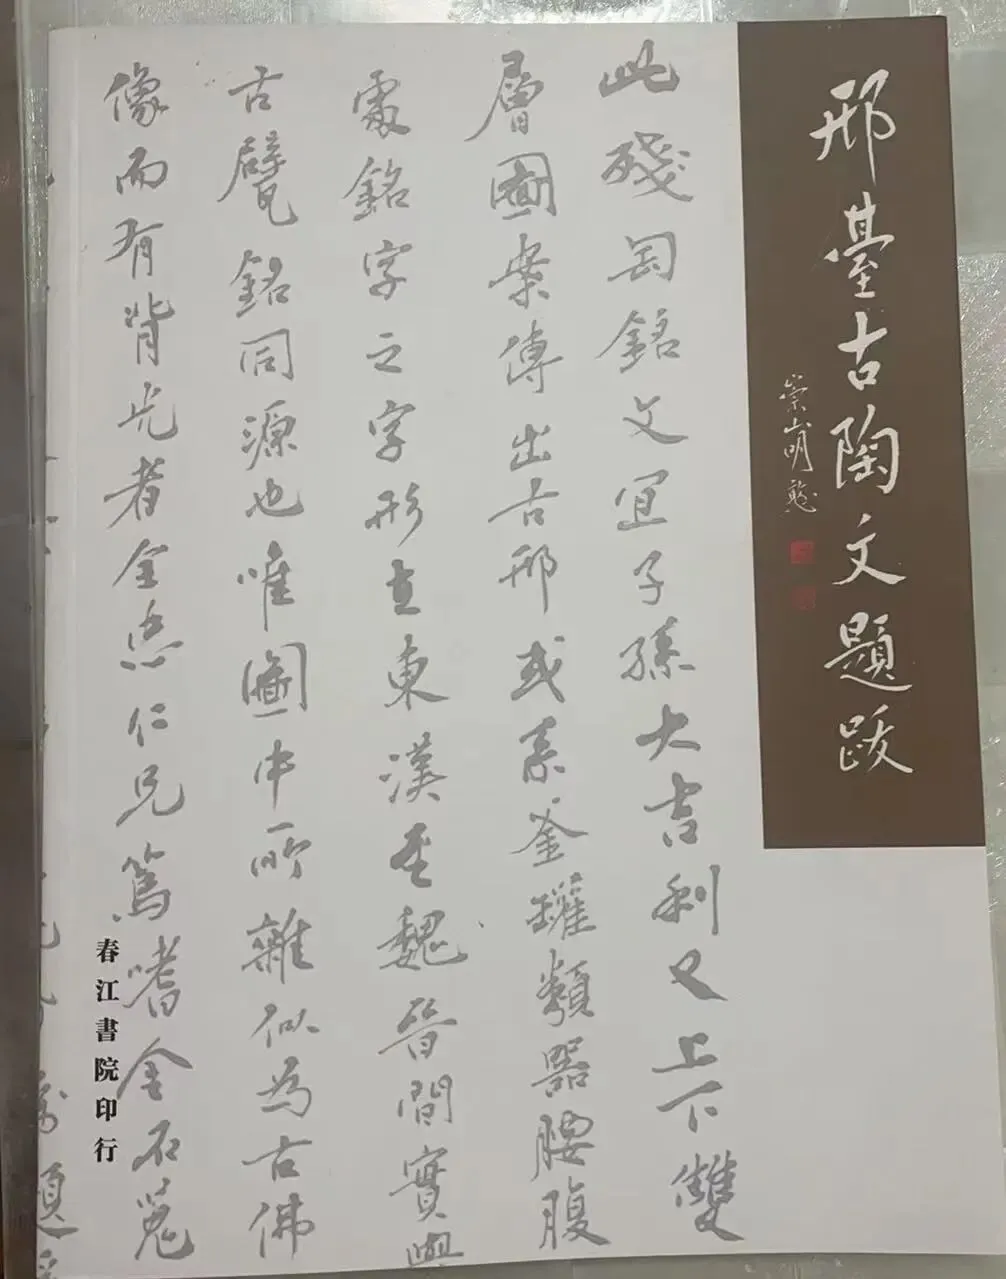 邢臺古陶文題跋
崇山明
此殘匋銘文宜子孫大吉利又上下雙
層圖案傳出古邢或系釜罐類器腰腹
處銘字之字形在東漢至魏晉間實與
古甓銘同源也唯圖中所雜似為古佛
像而有背光者全忠仁兄篤嗜金石蒐
春江書院印行